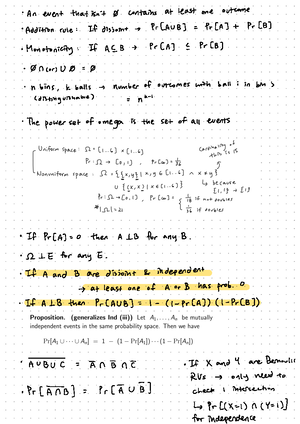 • An event that isn't ∅ contains at least one outcome
• Addition rule: If disjoint → Pr[A∪B] = Pr[A] + Pr[B]
• Monotonicity: If A ⊆ B → Pr[A] ≤ Pr[B]
• ∅ ∩ (or) ∪ ∅ = ∅
• n bins, k balls → number of outcomes with ball i in bin j
(distinguishable) = n^{k-1}
• The power set of omega is the set of all events
Uniform space: Ω = [1..6] × [1..6]
Pr: Ω → [0,1], Pr[ω] = 1/36
Cardinality of this is 15
Nonuniform space: Ω = {{x,y} | x,y ∈ [1..6] ∧ x≠y}
∪ {{x,x} | x ∈ [1..6]}
↳ because
Pr: Ω → [0,1], Pr[ω] = { 1/18 if not doubles
1/36 if doubles
|Ω| = 21
• If Pr[A] = 0 then A ⊥ B for any B.
• Ω ⊥ E for any E.
• If A and B are disjoint & independent
→ at least one of A or B has prob. 0
• If A ⊥ B then Pr[A∪B] = 1 - (1-Pr[A])(1-Pr[B])
Proposition. (generalizes Ind (iii)) Let A₁, ..., Aₙ be mutually
independent events in the same probability space. Then we have
Pr[A₁ ∪ ··· ∪ Aₙ] = 1 − (1 − Pr[A₁]) ··· (1 − Pr[Aₙ])
• \overline{A∪B∪C} = \overline{A} ∩ \overline{B} ∩ \overline{C}
• Pr[\overline{A∩B}] = Pr[\overline{A} ∪ \overline{B}]
• If X and Y are Bernoulli
RVs → only need to
check 1 intersection
↳ Pr[(X=1) ∩ (Y=1)]
for independence